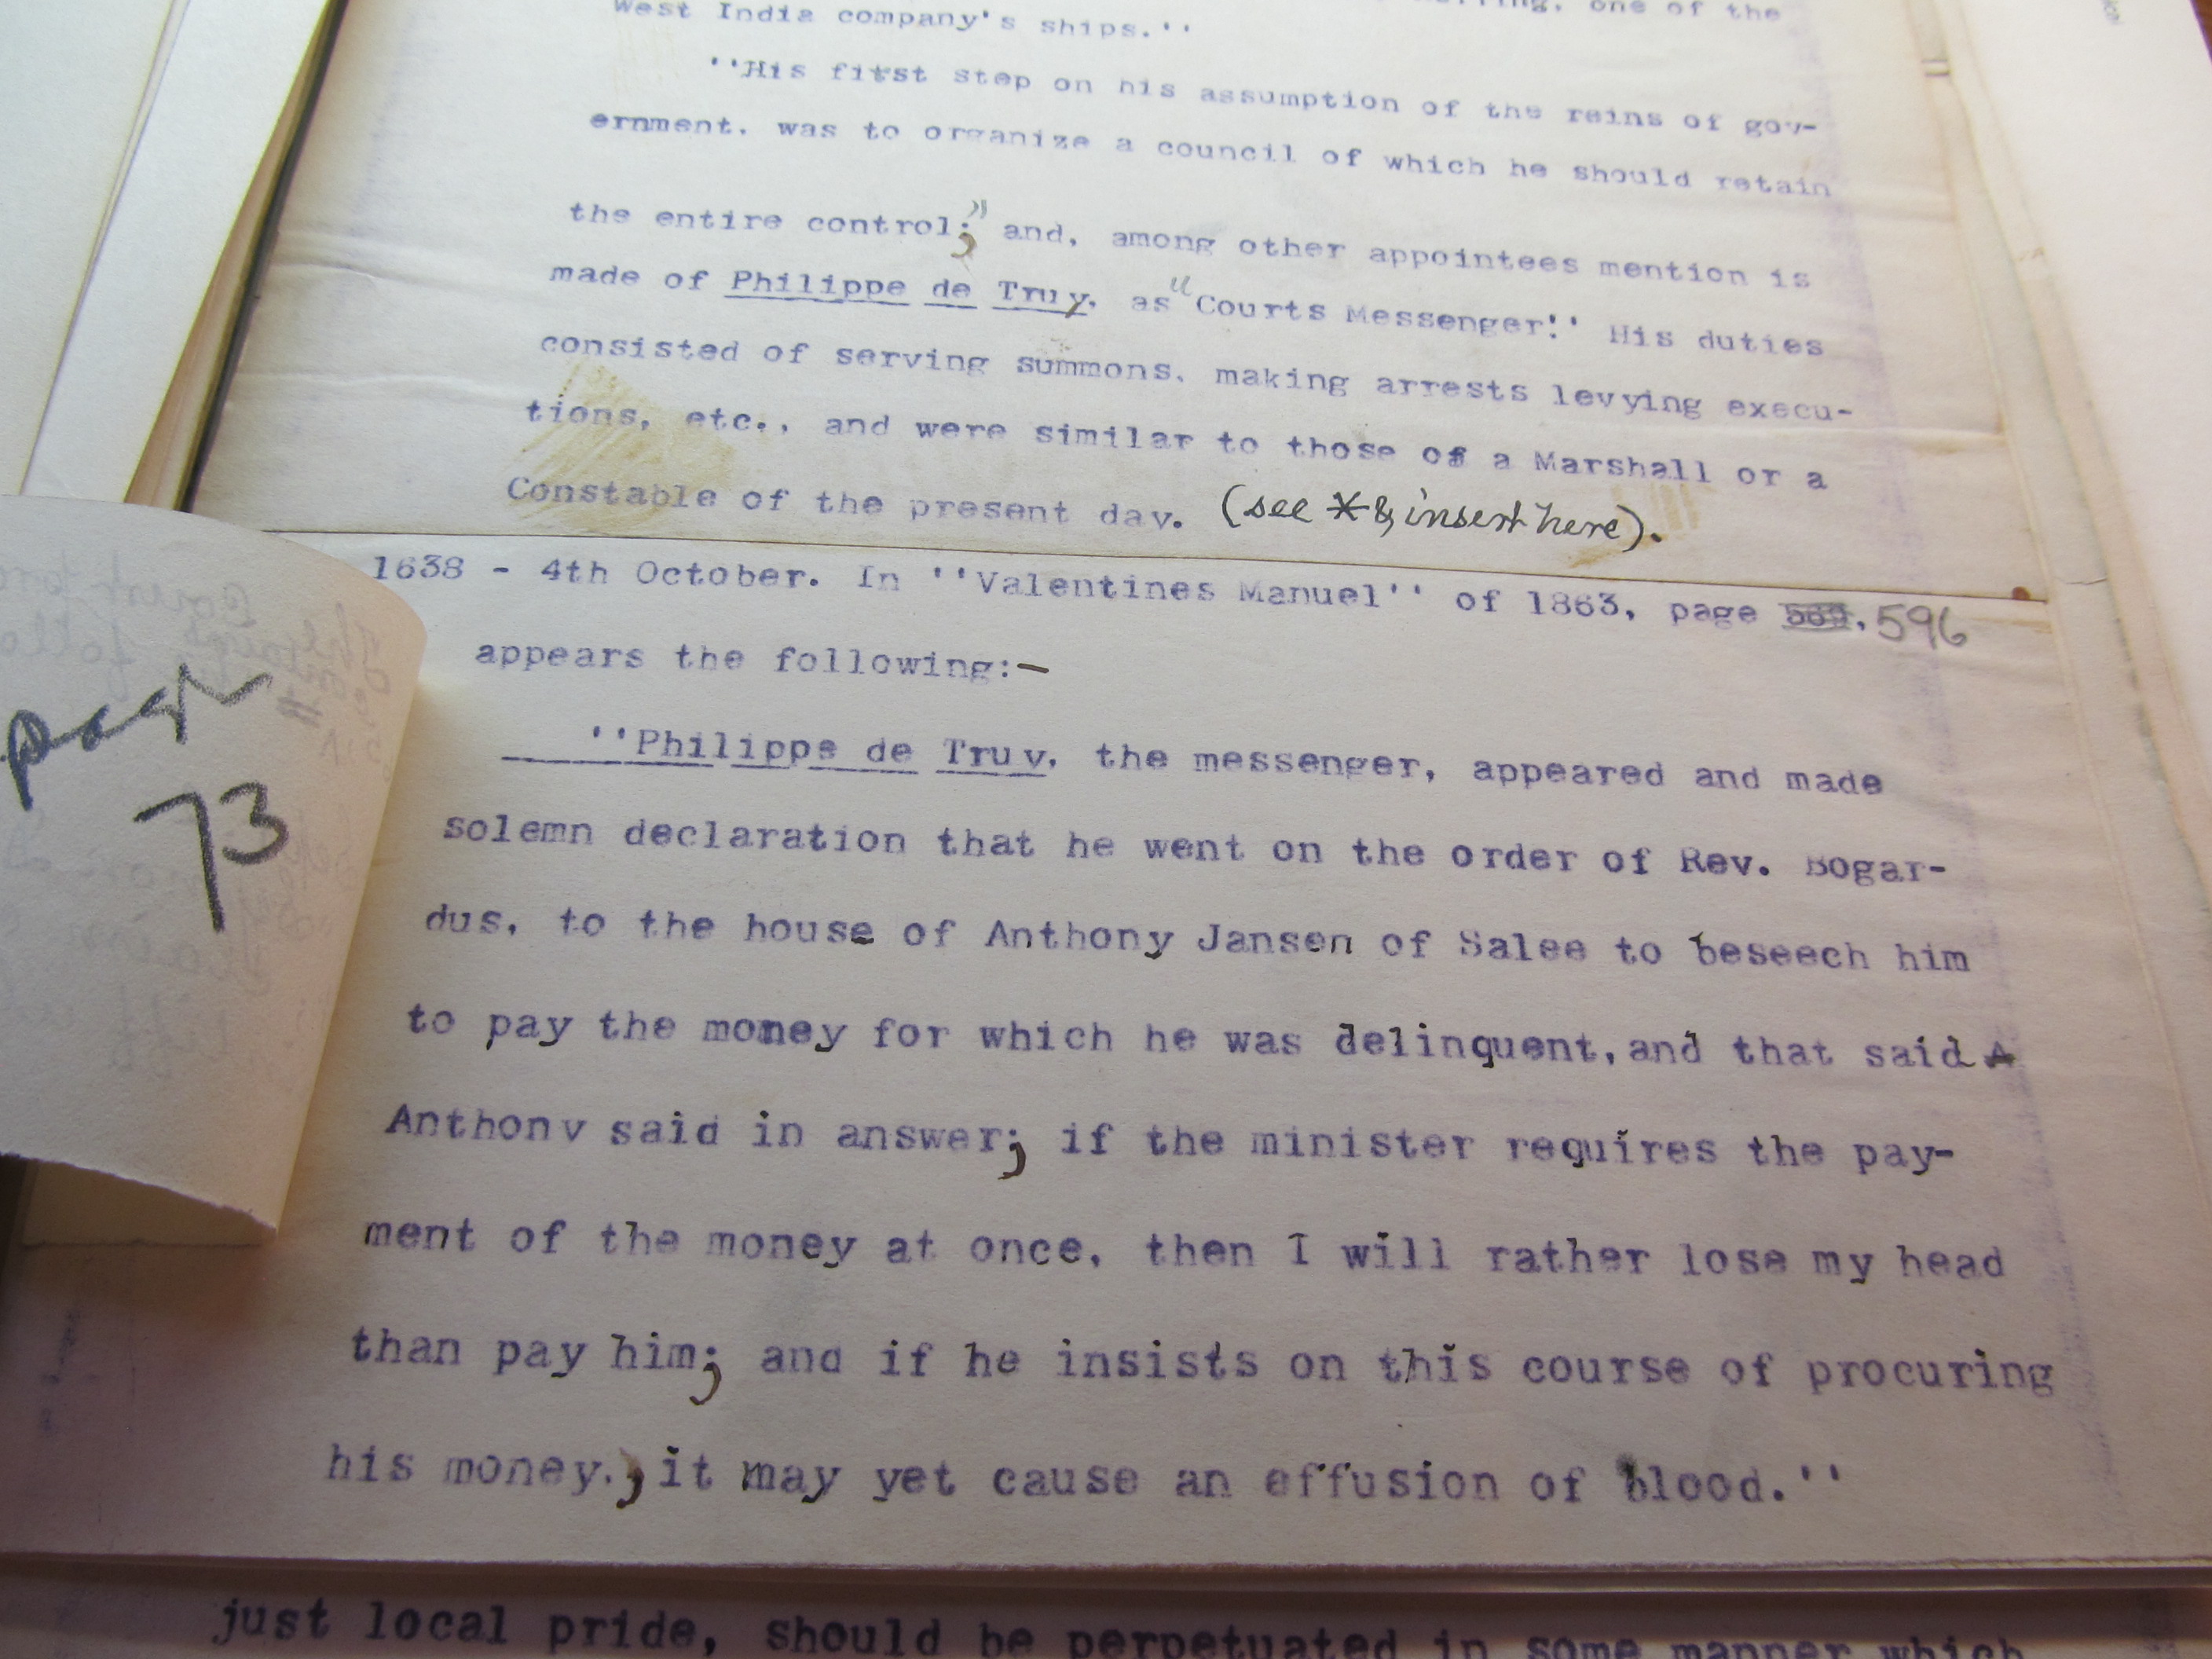 one of the
West India company's ships.''
''His first step on his assumption of the reins of gov-
ernment, was to organize a council of which he should retain
the entire control;" and, among other appointees mention is
made of Philippe de Truy, as "Courts Messenger!' His duties
consisted of serving summons, making arrests levying execu-
tions, etc., and were similar to those of a Marshall or a
Constable of the present day. (see * & insert here).
1638 - 4th October. In ''Valentines Manuel'' of 1863, page 596
appears the following:-
''Philippe de Truy, the messenger, appeared and made
solemn declaration that he went on the order of Rev. Bogar-
dus, to the house of Anthony Jansen of Salee to beseech him
to pay the money for which he was delinquent, and that said A
Anthony said in answer; if the minister requires the pay-
ment of the money at once, then I will rather lose my head
than pay him; and if he insists on this course of procuring
his money., it may yet cause an effusion of blood.''
page
73
just local pride, should be perpetuated in some manner which